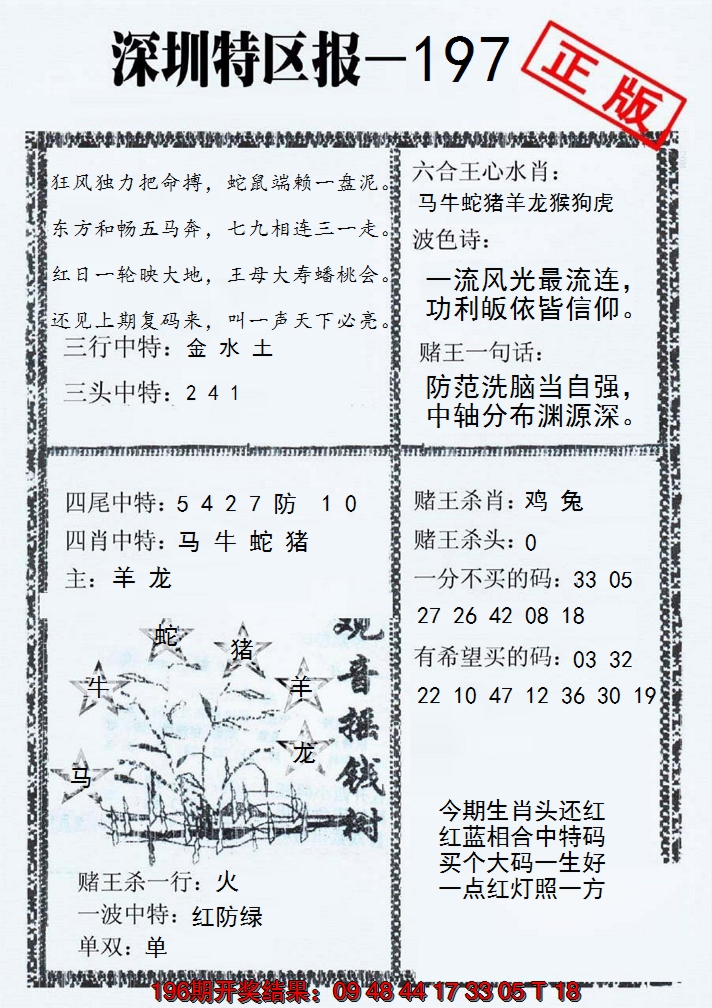 深圳特区报—197
正版
狂风独力把命搏，蛇鼠端赖一盘泥。
东方和畅五马奔，七九相连三一走。
红日一轮映大地，王母大寿蟠桃会。
还见上期复码来，叫一声天下必亮。
三行中特：金 水 土
三头中特：2 4 1
六合王心水肖：
马牛蛇猪羊龙猴狗虎
波色诗：
一流风光最流连，
功利皈依皆信仰。
赌王一句话：
防范洗脑当自强，
中轴分布渊源深。
四尾中特：5 4 2 7 防 1 0
四肖中特：马 牛 蛇 猪
主：羊 龙
观音摇钱树
蛇
猪
牛
羊
龙
马
赌王杀一行：火
一波中特：红防绿
单双：单
赌王杀肖：鸡 兔
赌王杀头：0
一分不买的码：33 05
27 26 42 08 18
有希望买的码：03 32
22 10 47 12 36 30 19
今期生肖头还红
红蓝相合中特码
买个大码一生好
一点红灯照一方
196期开奖结果：09 48 44 17 33 05 T 18